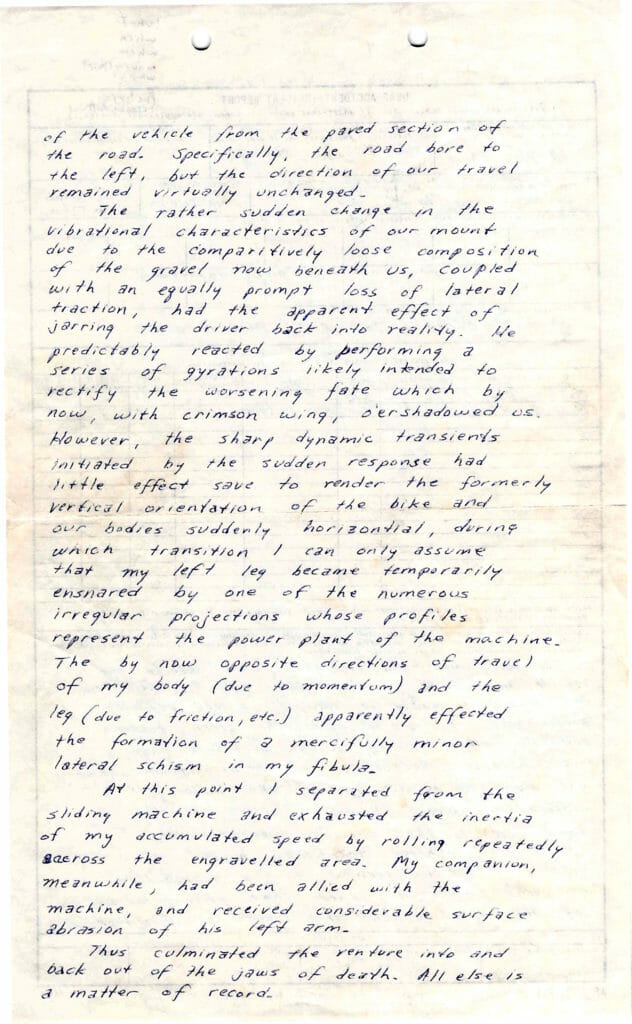 of the vehicle from the paved section of
the road. Specifically, the road bore to
the left, but the direction of our travel
remained virtually unchanged.
The rather sudden change in the
vibrational characteristics of our mount
due to the comparitively loose composition
of the gravel now beneath us, coupled
with an equally prompt loss of lateral
traction, had the apparent effect of
jarring the driver back into reality. He
predictably reacted by performing a
series of gyrations likely intended to
rectify the worsening fate which by
now, with crimson wing, o'ershadowed us.
However, the sharp dynamic transients
initiated by the sudden response had
little effect save to render the formerly
vertical orientation of the bike and
our bodies suddenly horizontial, during
which transition I can only assume
that my left leg became temporarily
ensnared by one of the numerous
irregular projections whose profiles
represent the power plant of the machine.
The by now opposite directions of travel
of my body (due to momentum) and the
leg (due to friction, etc.) apparently effected
the formation of a mercifully minor
lateral schism in my fibula.
At this point I separated from the
sliding machine and exhausted the inertia
of my accumulated speed by rolling repeatedly
across the engravelled area. My companion,
meanwhile, had been allied with the
machine, and received considerable surface
abrasion of his left arm.
Thus culminated the venture into and
back out of the jaws of death. All else is
a matter of record.